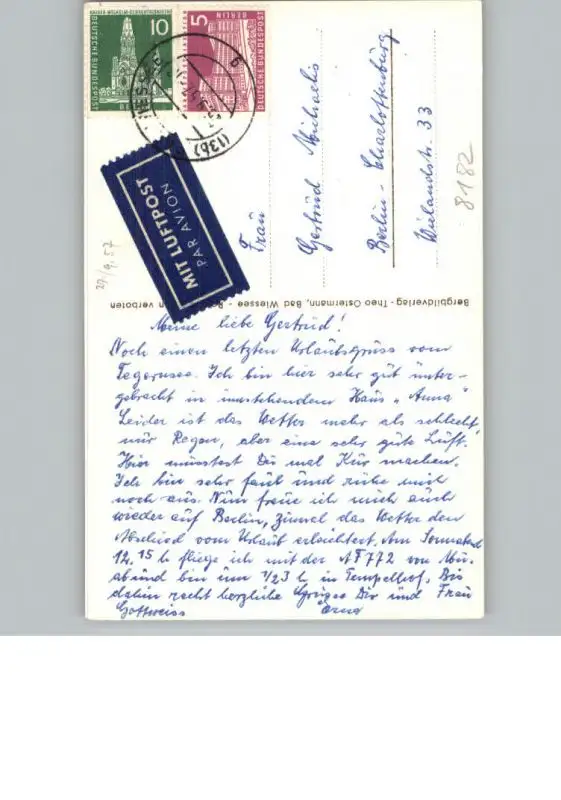 10
DEUTSCHE BUNDESPOST
5
BERLIN
DEUTSCHE BUNDESPOST
(13b)
MIT LUFTPOST
PAR AVION
29/9.57
Frau
Gertrud Michaelis
Berlin-Charlottenburg
Wielandstr. 33
8182
Bergbildverlag - Theo Ostermann, Bad Wiessee - verboten
Meine liebe Gertrud!
Noch einen letzten Urlaubsgruss vom
Tegernsee. Ich bin hier sehr gut unter-
gebracht in umstehendem Haus „Anna"
Leider ist das Wetter mehr als schlecht,
nur Regen, aber eine sehr gute Luft.
Hier müsstest Du mal Kur machen.
Ich bin sehr faul und ruhe mich
noch aus. Nun freue ich mich auch
wieder auf Berlin, zumal das Wetter den
Abschied vom Urlaub erleichtert. Am Sonnabend
12.15 h fliege ich mit der AF 772 von
ab und bin um 1/2 3 h in Tempelhof. Bis
dahin recht herzliche Grüsse Dir und Frau
Gottweiss